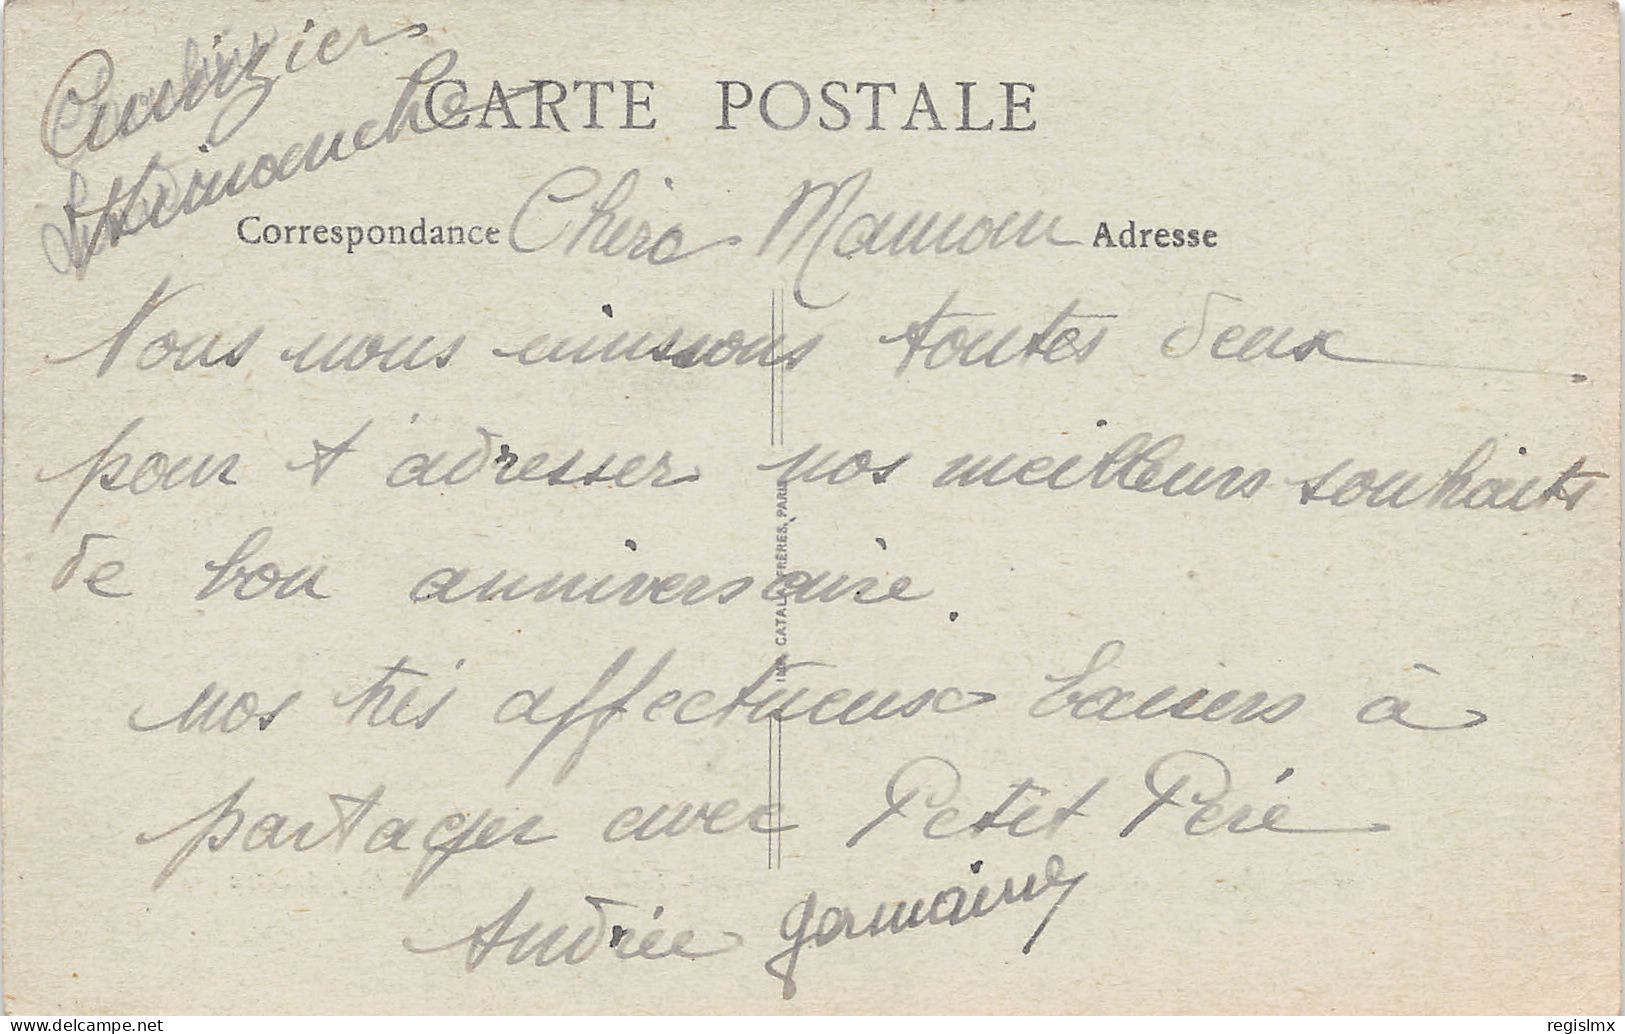 Dimanche
CARTE POSTALE
Correspondance Chère Maman Adresse
Nous nous unissons toutes deux
pour t'adresser nos meilleurs souhaits
de bon anniversaire.
nos très affectueux baisers à
partager avec Petit Père
Andrée Germaine
IMP. CATALA FRÈRES, PARIS
regislmx
delcampe.net